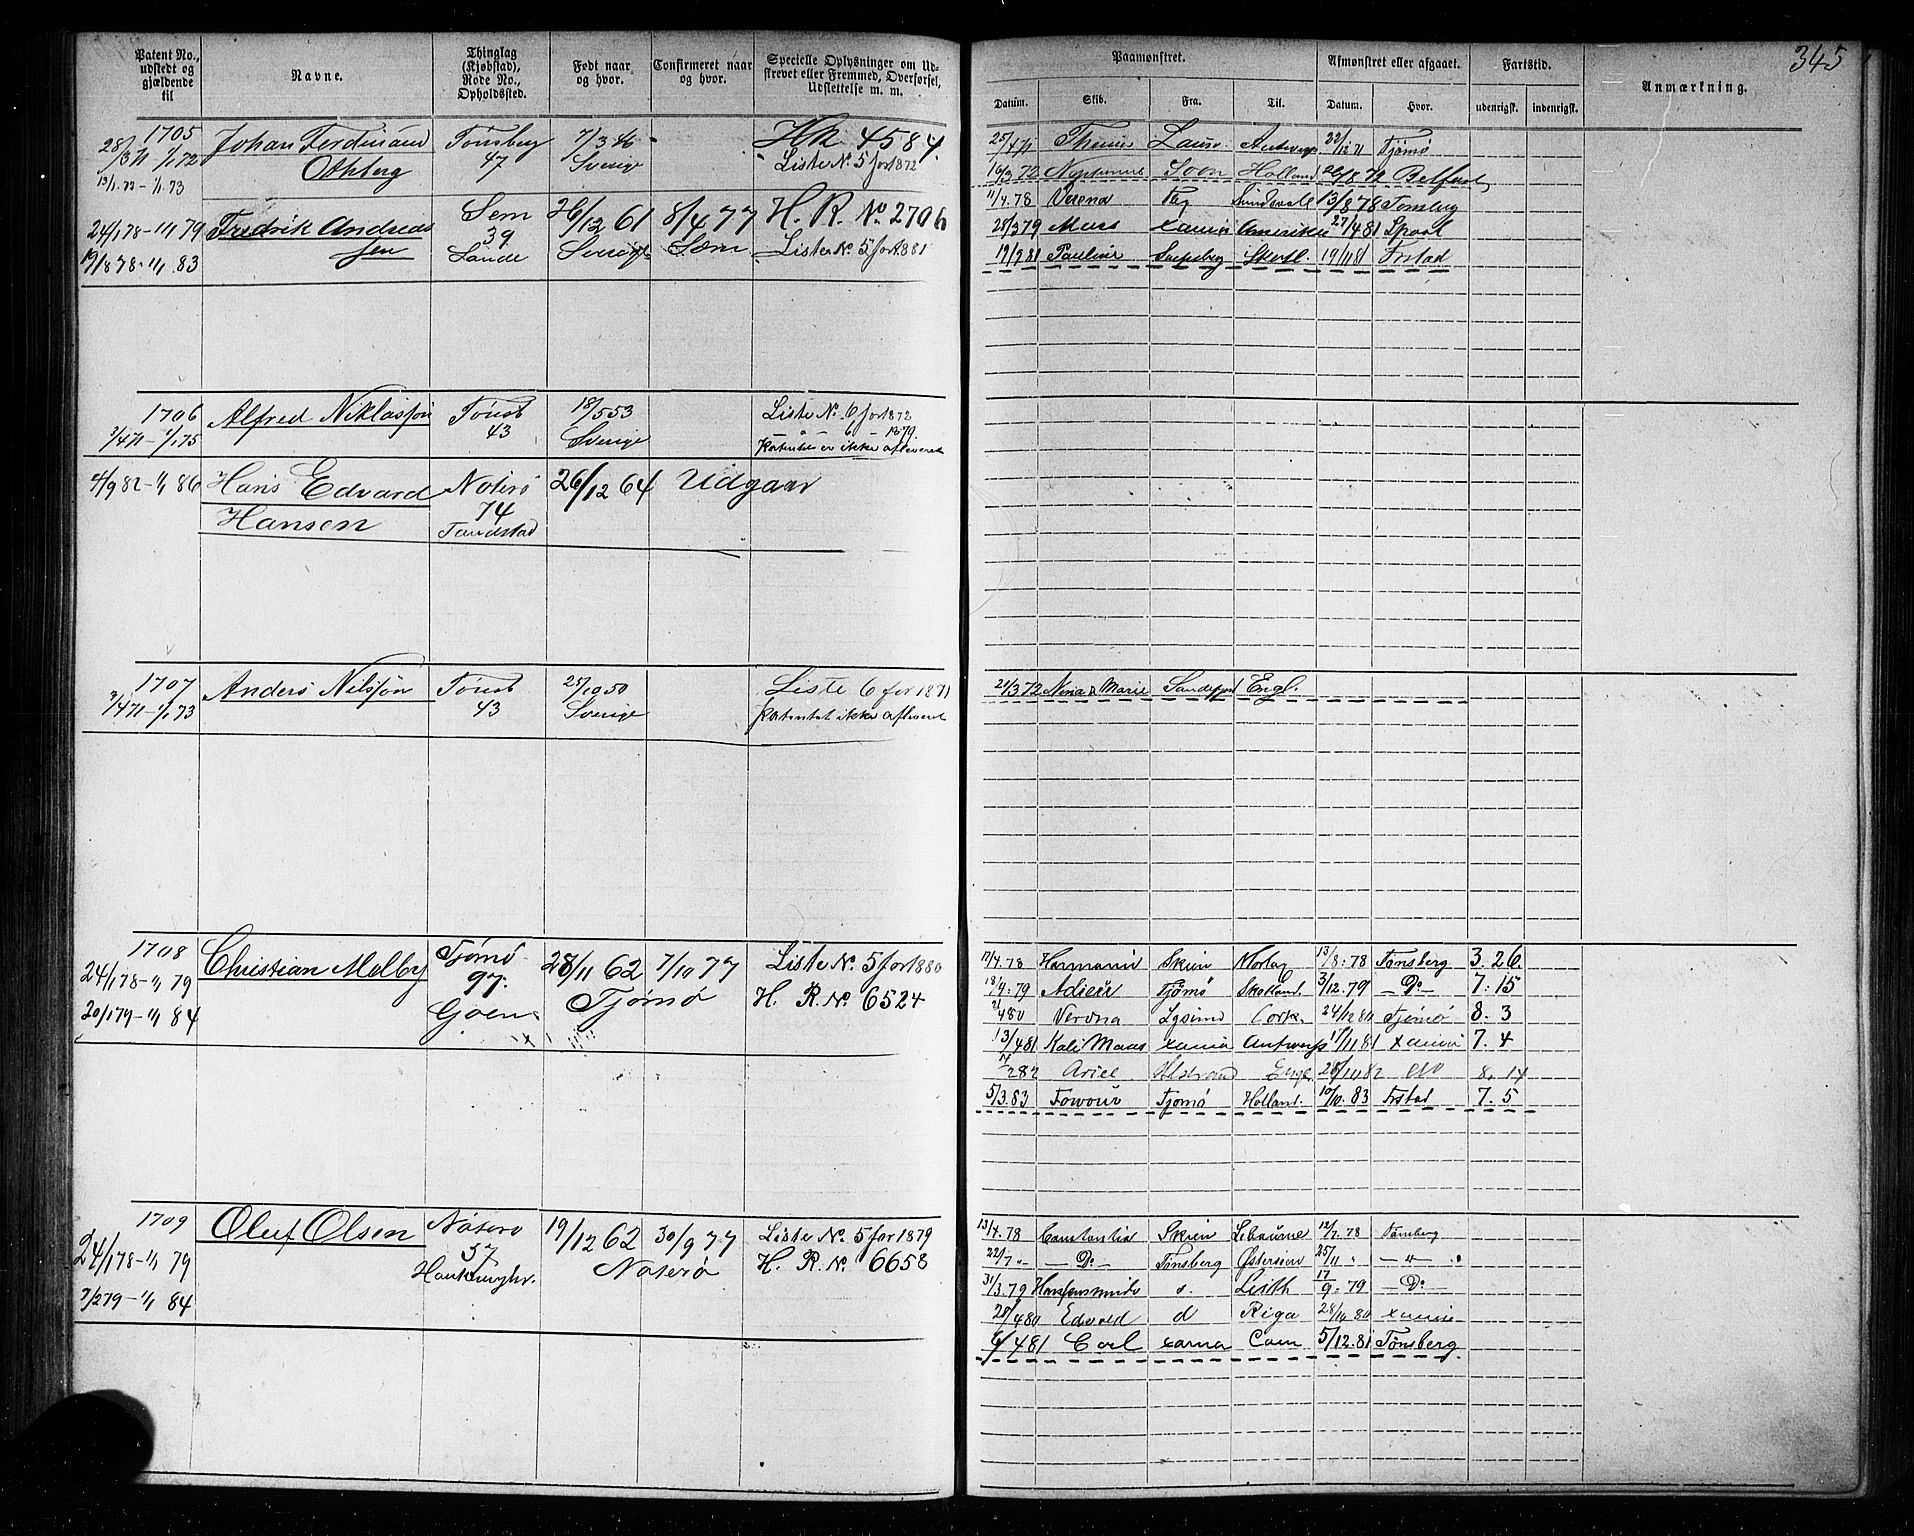 345
Patent No., udstedt og gjældende til
Navne.
Thinglag (Kjøbstad), Rode No., Opholdssted.
Født naar og hvor.
Confirmeret naar og hvor.
Specielle Oplysninger om Udskrevet eller Fremmed, Overførsel, Udslettelse m. m.
Paamønstret.
Afmønstret eller afgaaet.
Fartstid.
Anmærkning.
Datum.
Skib.
Fra.
Til.
Datum.
Hvor.
udenrigsk.
indenrigsk.
1705
28/3 71 1/1 72
13/1. 72 – 1/1. 73
Johan Ferdinand
Tønsberg
47
7/3 46
Sverige
4584.
Liste No. 5 for 1872
25/4 71
Antwerp
22/12 71
Tjømø
16/3 72
Neptunus
Soon
Holland
26/8 72
Belfast
24/1 78 – 1/1 79
19/8 78 – 1/1 83
Fredrik Andreas
sen
Sem
39
Sande
26/12 61
Sverige
8/4 77
Sæm
H. R. No. 2706
Liste No. 5 for 1881
11/4. 78
Verena
Sundsvall
13/8 78
Tønsberg
28/3 79
Maas
xania
Amerika
27/4 81
Pauline
Sarpsborg
Skotl.
19/11 81
Frstad
1706
1/4 71 – 1/1 75
Alfred Niklasson
Tønsb
43
18/5 53
Sverige
Liste No. 6 for 1872
– " – 6 – 1879
Patentet er ikke afleveret
4/9 82 – 1/1 86
Hans Edvard
Hansen
Nøterø
74
26/12 64
Udgaar
1707
3/4 71 – 1/1 73
Anders Nilsson
Tønsb
43
25/10 50
Sverige
Liste 6 for 1871
Patentet ikke afleveret
21/3 72
Marie
Sandefjord
Engl.
1708
24/1 78 – 1/1 79
20/1 79 – 1/1 84
Christian Melby
Tjømø
97.
28/11 62
Tjømø
7/10 77
Liste No. 5 for 1880
H. R. No. 6524
17/4. 78
Skien
13/8. 78
Tønsberg
3. 26.
18/4. 79
Tjømø
Skotland.
3/12. 79
– Do –
7. 15
2/4 80
Verdna
Cork.
24/12 80
Tjømø
8. 3
13/4 81
Maas
xania
Antwerp
17/11 81
xania
7. 4
7/2 82
Ariel
Engl.
8. 14
5/3. 83
Tjømø
Holland.
10/10. 83
Frstad
7. 5
1709
24/1 78 – 1/1 79
7/2 79 – 1/1 84
Oluf Olsen
Nøterø
37
19/12 62
Nøterø
30/9 77
Liste No. 5 for 1879
H. R. No. 6658
13/4. 78
Constantia
Skien
12/7. 78
Tønsberg
22/7 "–
– Do –
Tønsberg
Østersøen
25/11 "
– " –
31/3. 79
Leith
17/9. 79
– Do –
20/4 80
Edvard
d
Riga
28/10 80
xania
6/4 81
Carl
xania
Caen
5/12. 81
Tønsberg